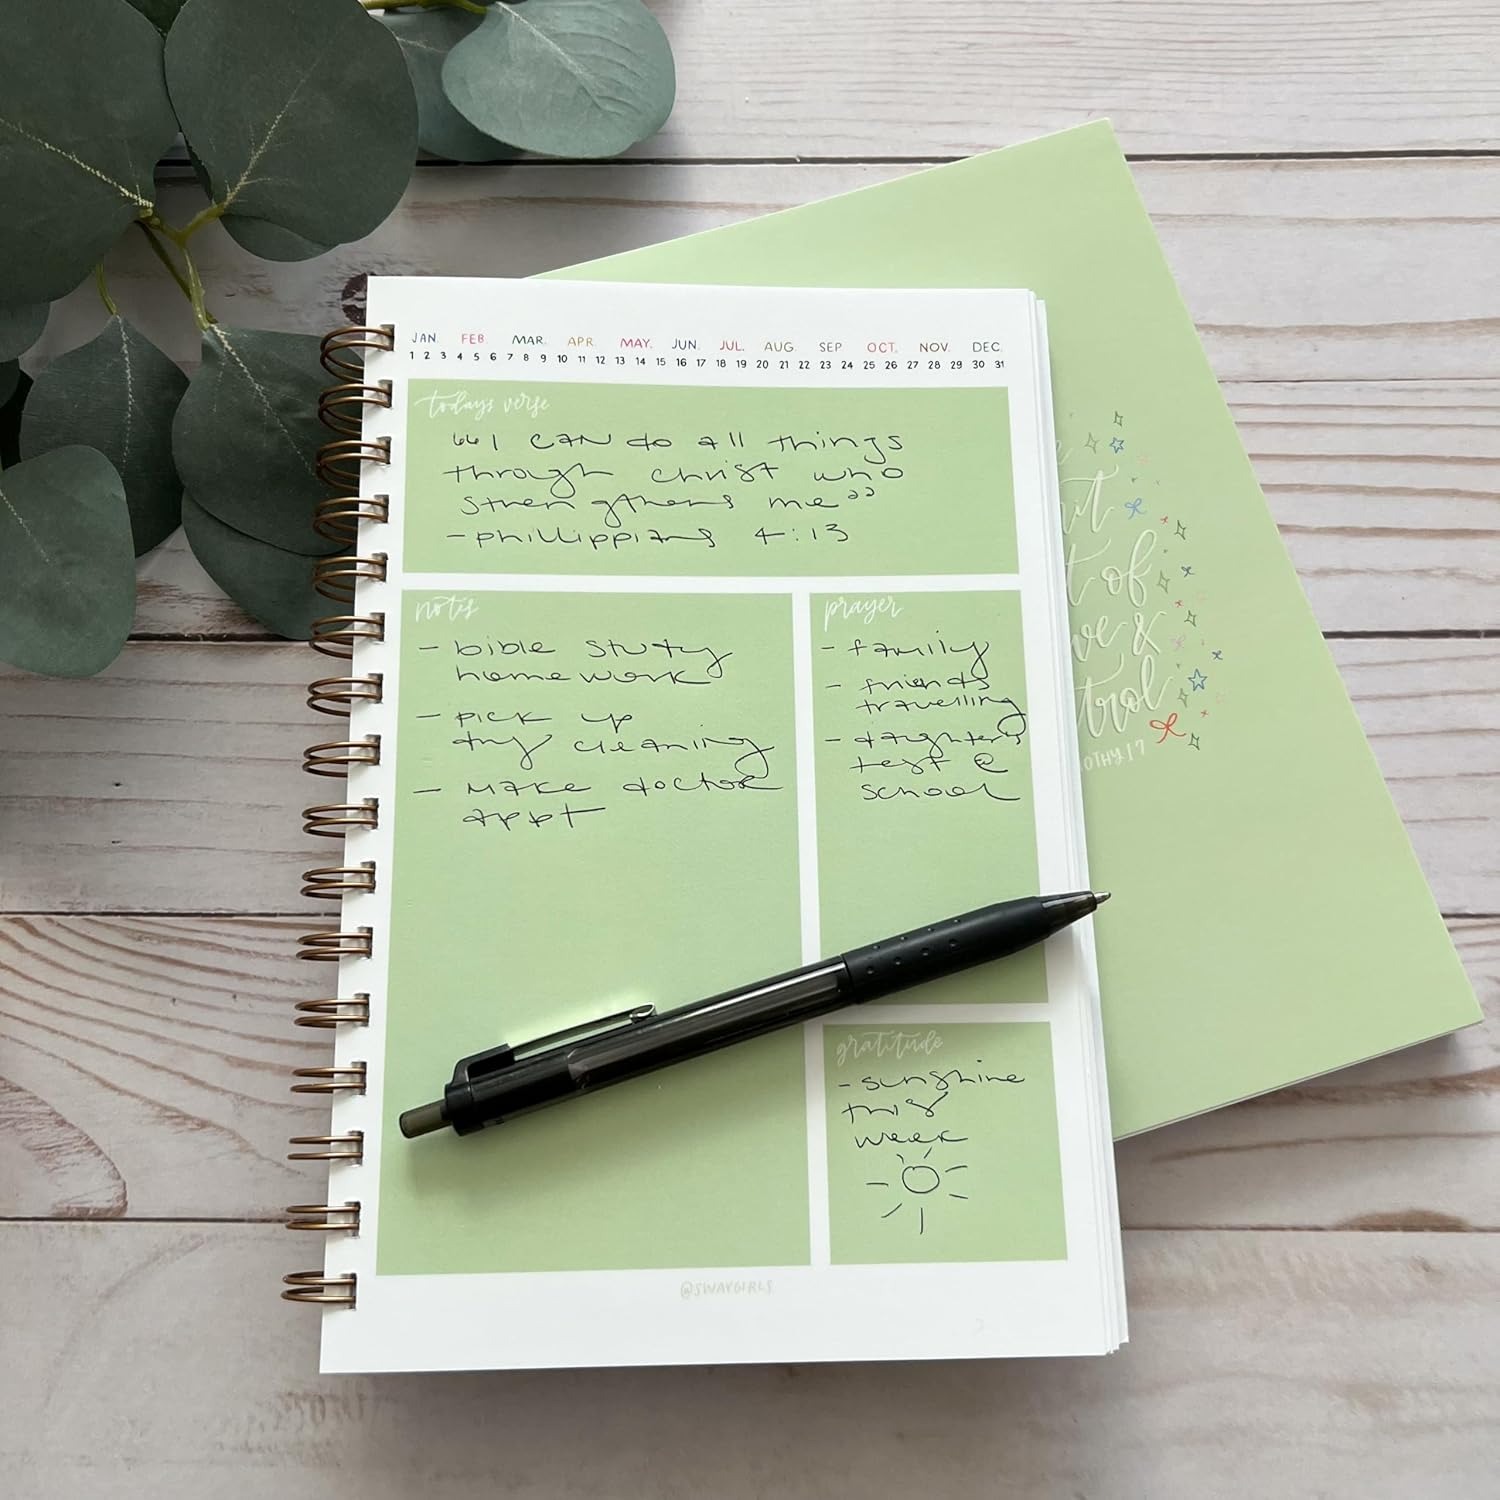 JAN. FEB. MAR. APR. MAY. JUN. JUL. AUG. SEP OCT. NOV. DEC.
1 2 3 4 5 6 7 8 9 10 11 12 13 14 15 16 17 18 19 20 21 22 23 24 25 26 27 28 29 30 31
todays verse
““I CAN do all things
through Christ who
strengthens me””
- phillippians 4:13
notes
- bible study
homework
- pick up
dry cleaning
- make doctor
appt
prayer
- family
- friends
travelling
- daughter's
test @
school
gratitude
- sunshine
this
week
@SWAYGIRLS
of
&